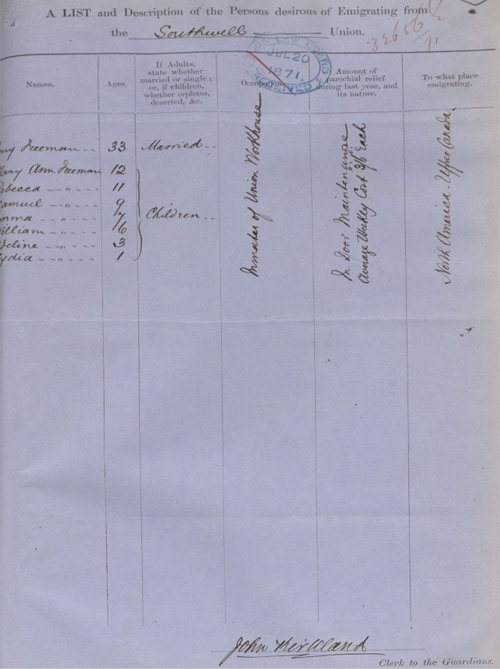 A LIST and Description of the Persons desirous of Emigrating from
the Southwell Union.
32656
/71
JUL 20
1871
Names.
Ages.
If Adults,
state whether
married or single;
or, if children,
whether orphans,
deserted, &c.
Amount of
parochial relief
during last year, and
its nature.
To what place
emigrating.
Freeman 33 Married
Ann Freeman 12
Rebecca " 11
Samuel " 9
Emma " 7
William " 6
3
Lydia " 1
Children
Inmates of Union Workhouse
In Door Maintenance
Average Weekly Cost 3/6 Each
North America - Upper Canada
John Kirkland
Clerk to the Guardians.